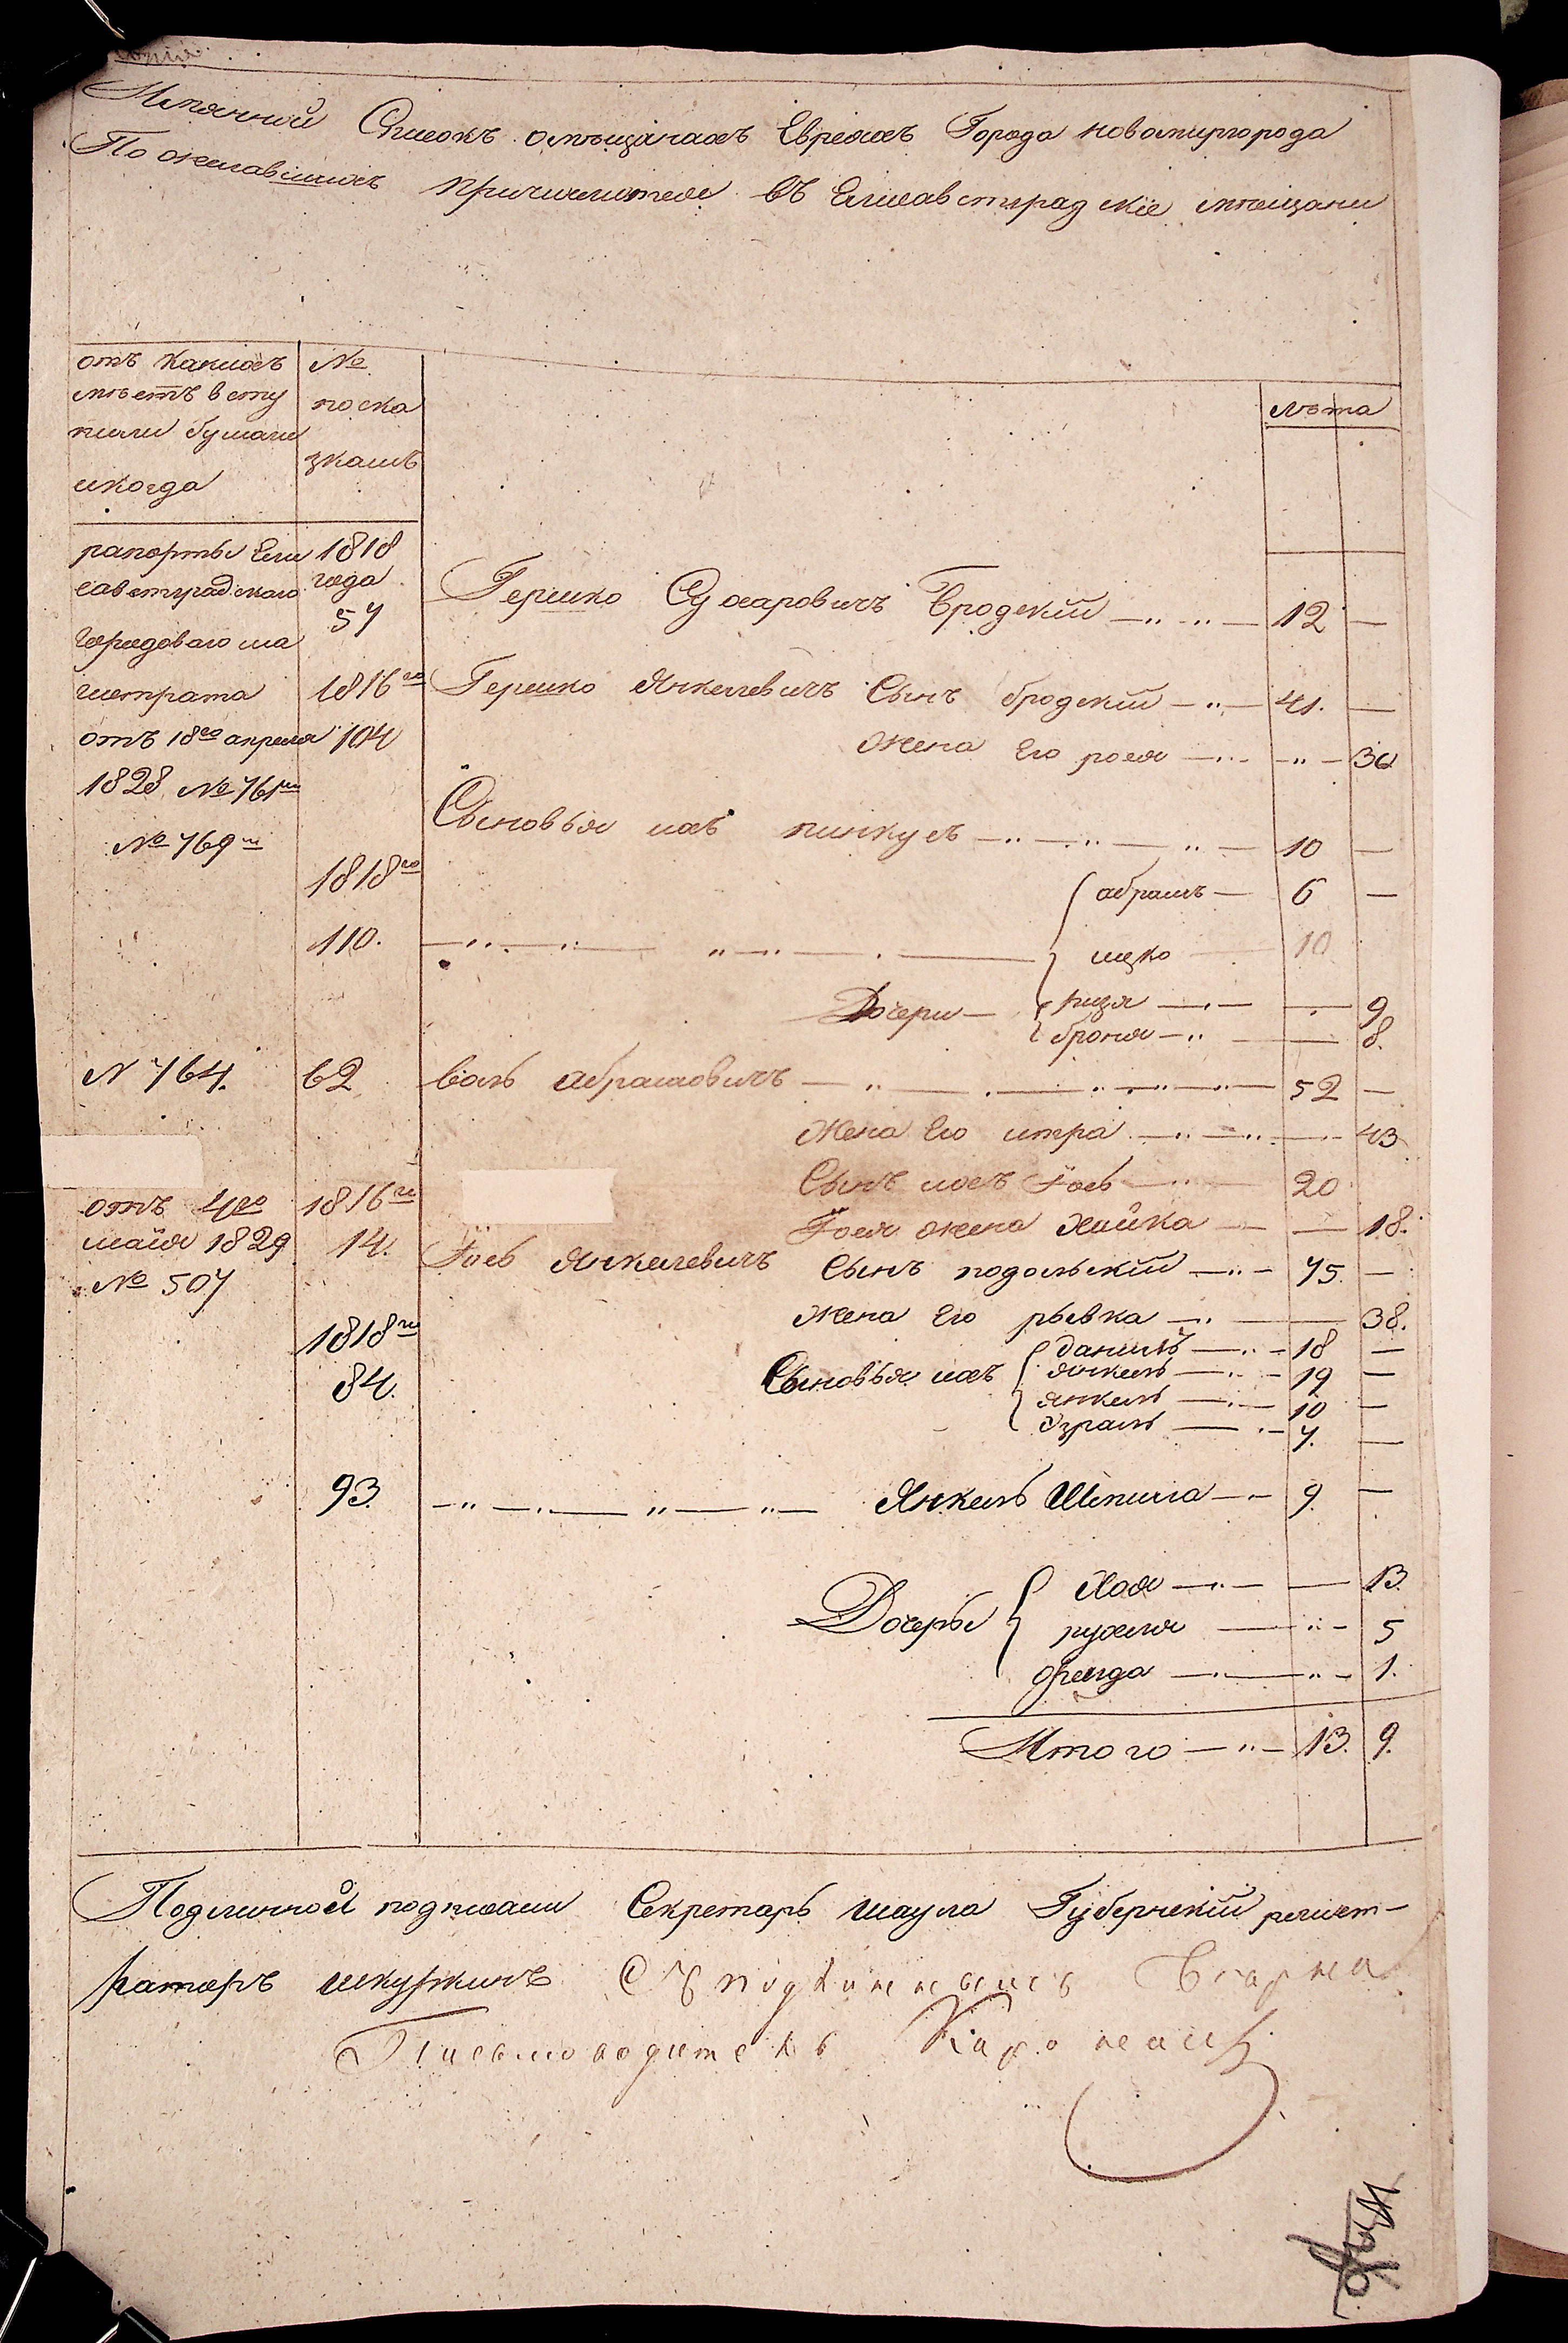 Копия.
Имянной Список омещанах Евреях Города новомиргорода
По желавших причислится въ Елисаветградскіе мещани
отъ Какихъ
местъ всту
пили бумаги
икогда
№
поска
зкамъ
лѣта
рапорты Ели
саветградскаго
городоваго ма
гистрата
отъ 18го апреля
1828 № 761м
№ 769м
1818
года
57
Гершко Сухаровичъ Бродскій 12 —
1816го Гершко Янкелевичъ Сынъ бродскій 41. —
104
жена Его рося — 36
Сыновья ихъ пинкусъ 10 —
1818го
абрамъ — 6 —
110. ицко 10
Дочери — рися — 9
броня — 8.
N 764. 62 волъ абрамовичъ 52 —
жена Его итра — 43
Сынъ ихъ Іосъ 20
Іося жена хайка — 18.
отъ 4го
майя 1829
№ 507
1816го
14.
Іосъ Янкелевичъ Сынъ подольскій 45. —
жена Его рывка — 38.
1818го
84.
Сыновья ихъ
данилъ 18 —
янкель 19 —
янкель 10 —
Израль 7. —
93. Янкель Шпила 9. —
Дочеры
Хая — 13.
рухля 5
фрейда 1.
Итого 13. 9.
Подлинной подписали Секретарь шаула Губернскій регист-
раторъ шкуркинъ Съ подлиннымъ
Письмоводитель